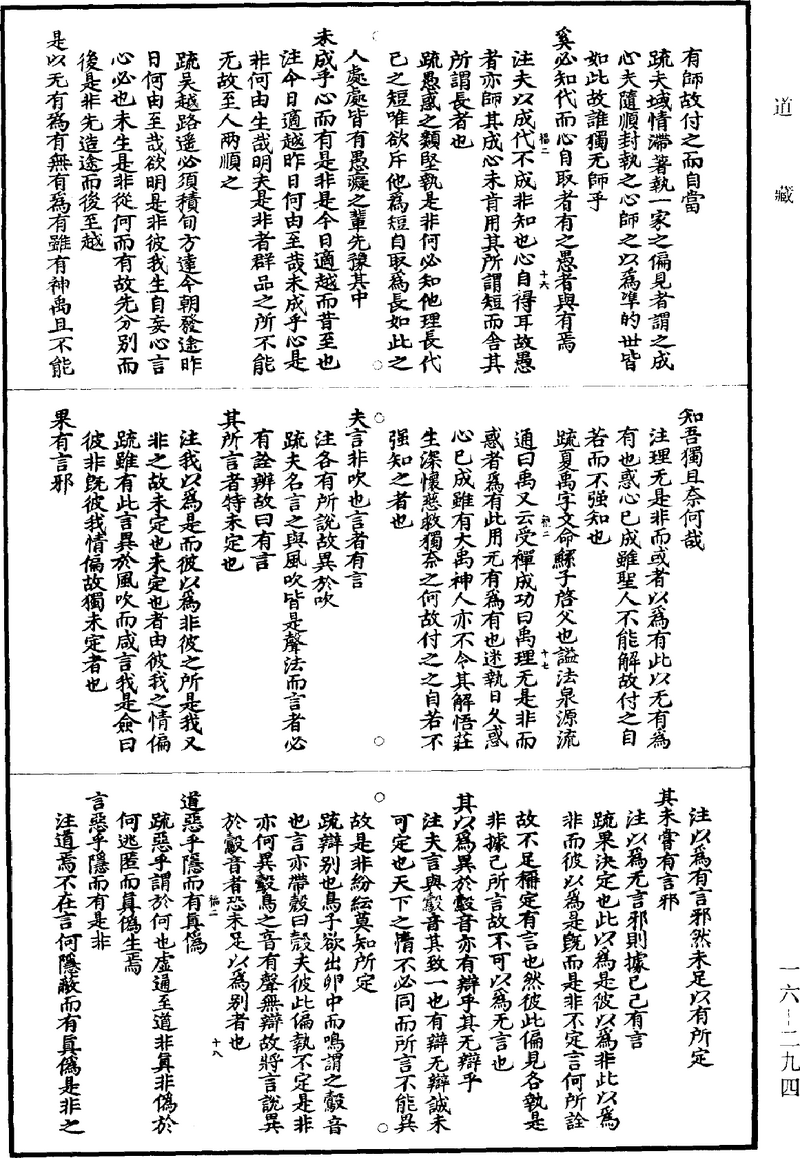 道藏
有師故付之而自當
疏夫域情滯著執一家之偏見者謂之成
心夫隨順封執之心師之以爲準的世皆
如此故誰獨无師乎
奚必知代而心自取者有之愚者與有焉
注夫以成代不成非知也心自得耳故愚
福二
十六
者亦師其成心未肯用其所謂短而舍其
所謂長者也
疏愚惑之類堅執是非何必知他理長代
己之短唯欲斥他爲短自取爲長如此之
人處處皆有愚癡之輩先豫其中
未成乎心而有是非是今日適越而昔至也
注今日適越昨日何由至哉未成乎心是
非何由生哉明夫是非者群品之所不能
无故至人兩順之
疏吳越路遥必須積旬方達今朝發途昨
日何由至哉欲明是非彼我生自妄心言
心必也未生是非從何而有故先分别而
後是非先造途而後至越
是以无有爲有無有爲有雖有神禹且不能
知吾獨且奈何哉
注理无是非而或者以爲有此以无有爲
有也惑心已成雖聖人不能解故付之自
若而不强知也
疏夏禹字文命鯀子啓父也謚法泉源流
通曰禹又云受禪成功曰禹理无是非而
福二
十七
惑者爲有此用无有爲有也迷執日久惑
心已成雖有大禹神人亦不令其解悟莊
生深懷慈救獨奈之何故付之之自若不
强知之者也
夫言非吹也言者有言
注各有所說故異於吹
疏夫名言之與風吹皆是聲法而言者必
有詮辯故曰有言
其所言者特未定也
注我以爲是而彼以爲非彼之所是我又
非之故未定也未定也者由彼我之情偏
疏雖有此言異於風吹而咸言我是僉曰
彼非既彼我情偏故獨未定者也
果有言邪
注以爲有言邪然未足以有所定
其未嘗有言邪
注以爲无言邪則據已己有言
疏果決定也此以爲是彼以爲非此以爲
非而彼以爲是既而是非不定言何所詮
故不足稱定有言也然彼此偏見各執是
非據己所言故不可以爲无言也
其以爲異於鷇音亦有辯乎其无辯乎
注夫言與鷇音其致一也有辯无辯誠未
可定也天下之情不必同而所言不能異
故是非紛紜莫知所定
疏辯别也鳥子欲出卵中而鳴謂之鷇音
也言亦帶殼曰鷇夫彼此偏執不定是非
亦何異鷇鳥之音有聲無辯故將言說異
於鷇音者恐未足以爲别者也
福二
十八
道惡乎隱而有真僞
疏惡乎謂於何也虚通至道非真非僞於
何逃匿而真僞生焉
言惡乎隱而有是非
注道焉不在言何隱蔽而有真僞是非之
一六-二九四